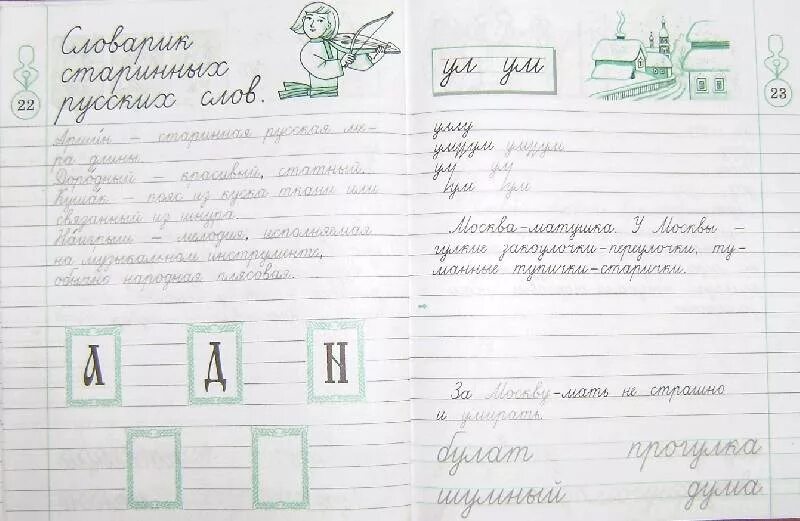 Словарик
старинных
русских слов.
22
Аршин – старинная русская ме-
ра длины.
Дородный – красивый, статный.
Кушак – пояс из куска ткани или
связанный из шнура.
Наигрыш – мелодия, исполняемая
на музыкальном инструменте,
обычно народная плясовая.
А Д Н
ул ум
23
уму
Москва-матушка. У Москвы –
гулкие закоулочки-переулочки, ту-
манные тупички-старички.
За Москву-мать не страшно
и умирать.
булат прогулка
шумный дума